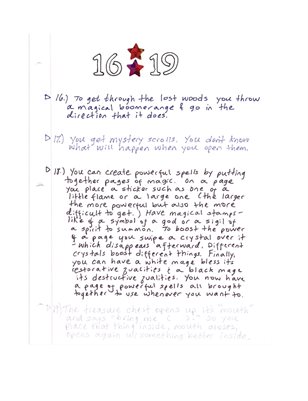 16 19
▷ 16.) To get through the lost woods you throw
a magical boomerange & go in the
direction that it does.
▷ 17.) You get mystery scrolls. You don't know
what will happen when you open them.
▷ 18.) You can create powerful spells by putting
together pages of magic. On a page
you place a sticker such as one of a
little flame or a large one (the larger
the more powerful but also the more
difficult to get.) Have magical stamps-
like of a symbol of a god or a sigil of
a spirit to summon. To boost the power
of a page you swipe a crystal over it
- which disappears afterward. Different
crystals boost different things. Finally,
you can have a white mage bless its
restorative qualities & a black mage
its destructive qualities. You now have
a page of powerful spells all brought
together to use whenever you want to.
The treasure chest opens up its "mouth"
and says "bring me
that thing inside, mouth closes,
opens again w/ something better inside.